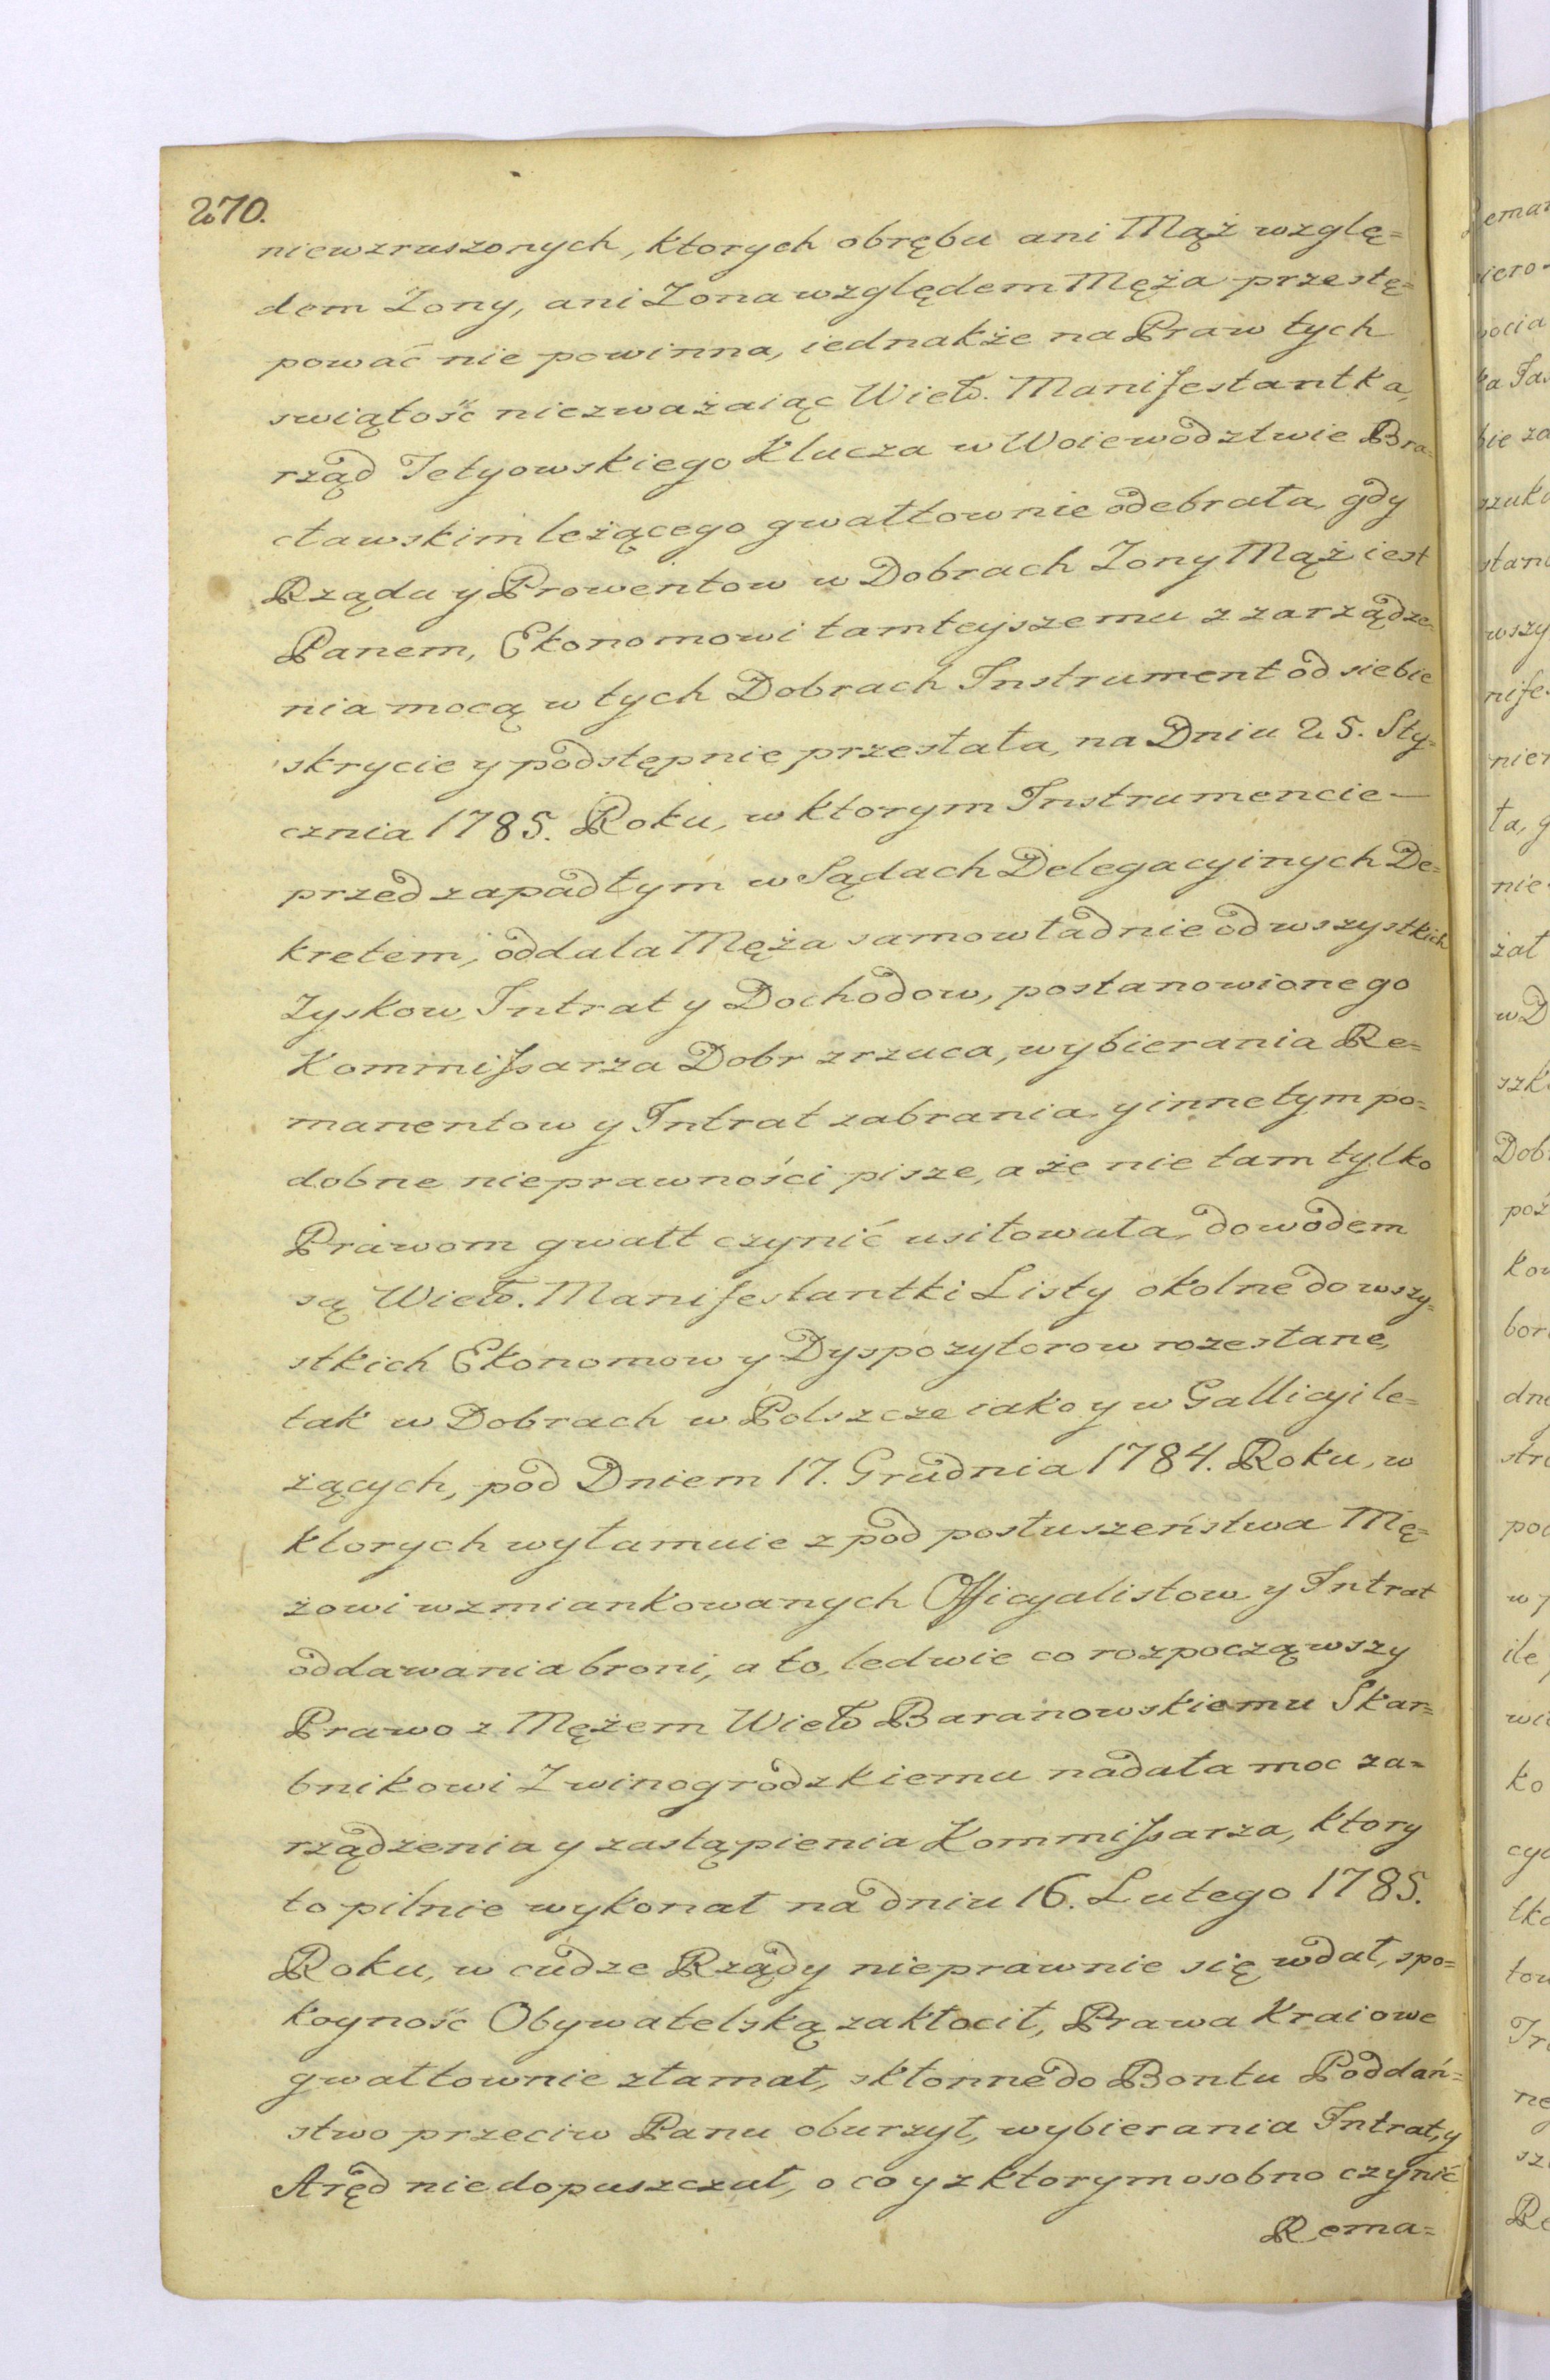 270.
niewzruszonych, ktorych obrębu ani Mąż wzglę=
dem Zony, ani Zona względem Męża przestę=
pować nie powinna, iednakże na Praw tych
swiątość niezważaiąc Wiel. Manifestantka,
rząd Tetyowskiego Klucza w Woiewodztwie Bra=
cławskim leżącego gwałtownie odebrała, gdy
Rządu y Prowentow w Dobrach Zony Mąż iest
Panem, Ekonomowi tamteyszemu z zarządze=
nia mocą w tych Dobrach Instrument od siebie
skrycie y podstępnie przesłała, na Dniu 25. Sty=
cznia 1785. Roku, w ktorym Instrumencie —
przed zapadłym w Sądach Delegacyinych De=
kretem, oddala Męża samowładnie od wszystkich
Zyskow, Intrat y Dochodow, postanowionego
Kommissarza Dobr zrzuca, wybierania Re=
manentow y Intrat zabrania y inne tym po=
dobne nieprawności pisze, a że nie tam tylko
Prawom gwałt czynić usiłowała, dowodem
są Wiel. Manifestantki Listy okolne do wszy=
stkich Ekonomow y Dyspozytorow rozesłane,
tak w Dobrach w Polszcze iako y w Gallicyi le=
żących, pod Dniem 17. Grudnia 1784. Roku, w
ktorych wyłamuie z pod posłuszeństwa Mę=
żowi wzmiankowanych Officyalistow y Intrat
oddawania broni, a to, ledwie co rozpocząwszy
Prawo z Mężem Wiel Baranowskiemu Skar=
bnikowi Zwinogrodzkiemu nadała moc za=
rządzenia y zastąpienia Kommissarza, ktory
to pilnie wykonał na dniu 16. Lutego 1785.
Roku, w cudze Rządy nieprawnie się wdał, spo=
koyność Obywatelską zakłocił, Prawa Kraiowe
gwałtownie złamał, skłonne do Bontu Poddań=
stwo przeciw Panu oburzył, wybierania Intrat, y
Aręd niedopuszczał, o co y z ktorym osobno czynić
Rema=